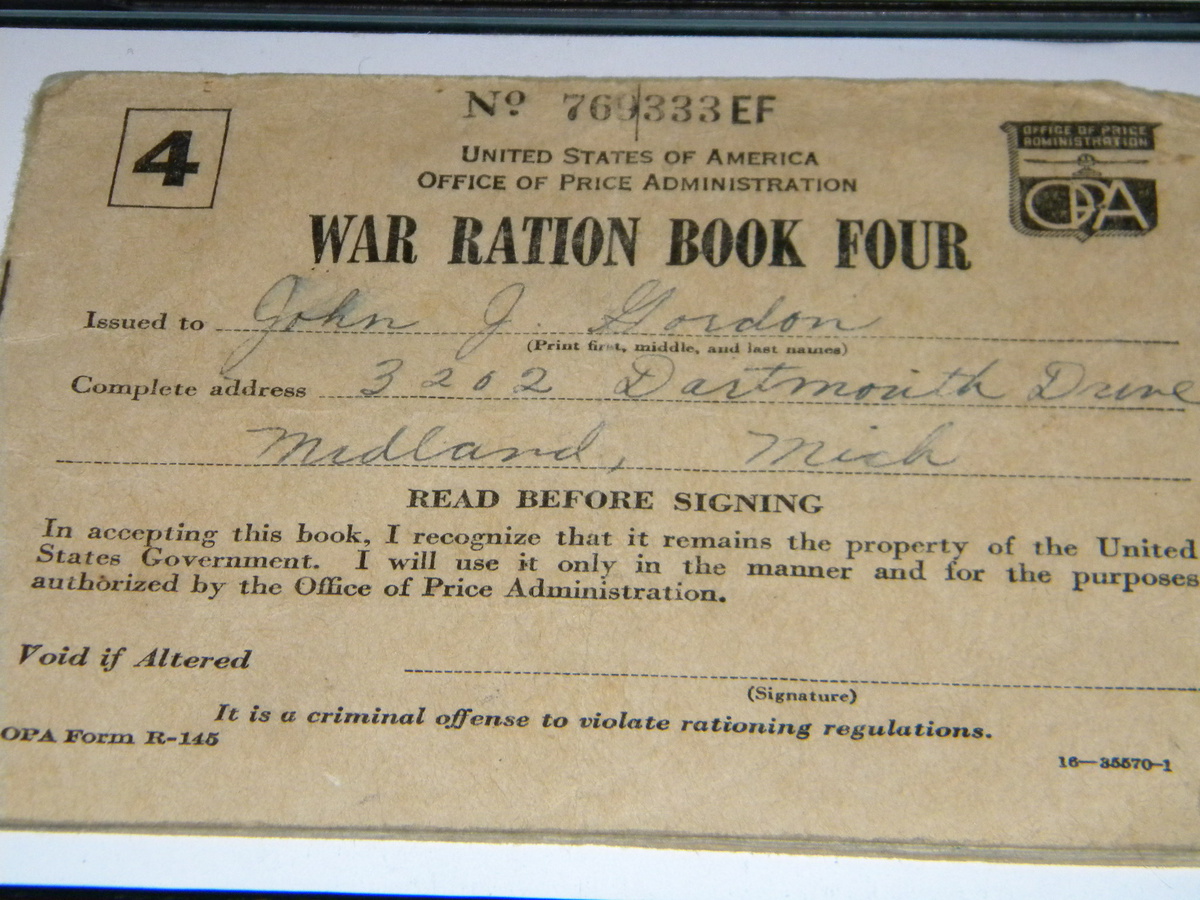 4
Nº 769333EF
OFFICE OF PRICE
ADMINISTRATION
OPA
UNITED STATES OF AMERICA
OFFICE OF PRICE ADMINISTRATION
WAR RATION BOOK FOUR
Issued to John J. Gordon
(Print first, middle, and last names)
Complete address 3202 Dartmouth Drive
Midland, Mich
READ BEFORE SIGNING
In accepting this book, I recognize that it remains the property of the United
States Government. I will use it only in the manner and for the purposes
authorized by the Office of Price Administration.
Void if Altered
(Signature)
It is a criminal offense to violate rationing regulations.
OPA Form R-145
16—35570-1